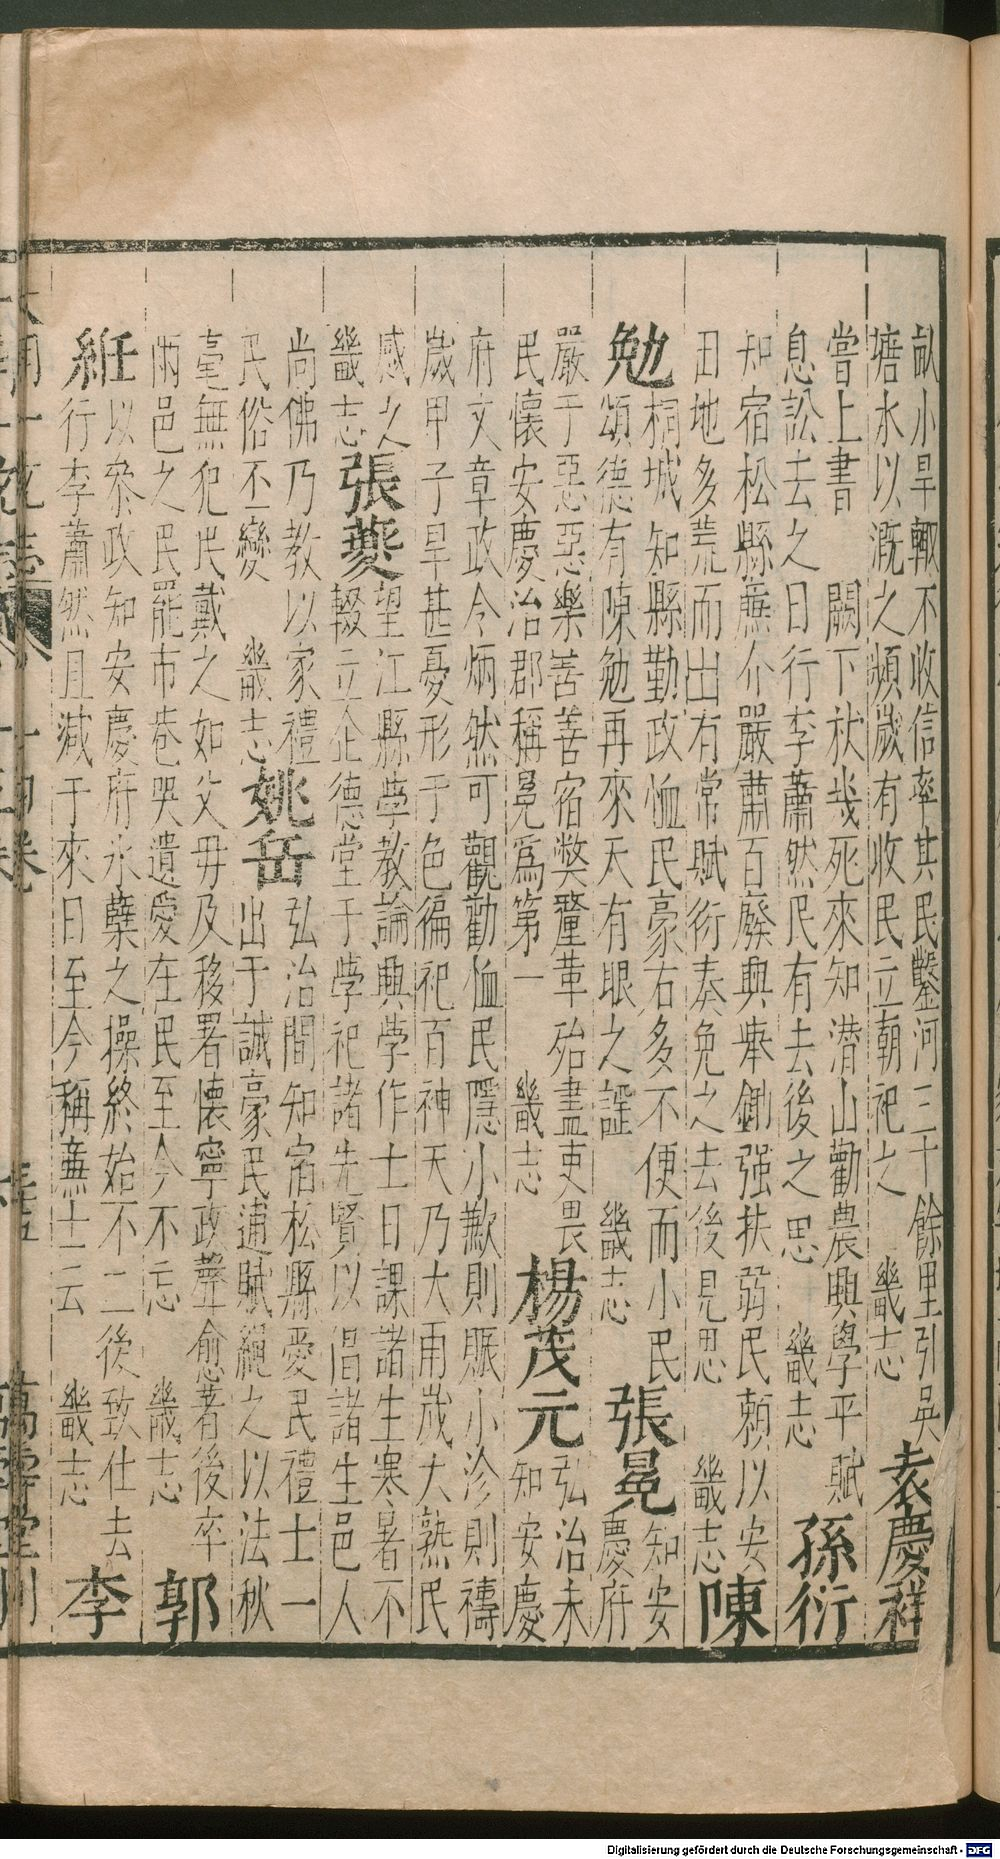 畝小旱輙不收信率其民鑿河三十餘里引吳
塘水以溉之頻歲有收民立朝祀之 畿志
袁慶祥
嘗上書 闕下杖幾死來知潜山勸農興學平賦
息訟去之日行李蕭然民有去後之思 畿志
孫衍
知宿松縣廉介嚴肅百廢興舉鋤强扶弱民頼以安
田地多荒而出有常賦衍奏免之去後見思 畿志
陳
勉
桐城知縣勤政恤民豪右多不便而小民
頌德有陳勉再來天有眼之謡 畿志
張冕
知安
慶府
嚴于惡惡樂善善宿獘釐革殆盡吏畏
民懐安慶治郡稱冕爲第一 畿志
楊茂元
弘治末
知安慶
府文章政令炳然可觀勸恤民隱小歉則賑小沴則禱
歲甲子旱甚憂形于色徧祀百神天乃大雨歲大熟民
感之
畿志
張爕
望江縣學教論興學作士日課諸生寒暑不
輟立企德堂于學祀諸先賢以倡諸生邑人
尚佛乃教以家禮
民俗丕變 畿志
姚岳
弘治間知宿松縣愛民禮士一
出于誠豪民逋賦繩之以法秋
毫無犯民戴之如父毋及移署懐寧政聲愈著後卒
兩邑之民罷市巷哭遺愛在民至今不忘 畿志
郭
紝
以叅政知安慶府氷蘗之操終始不二後致仕去
行李蕭然且減于來日至今稱廉士云 畿志
李
萬壽堂刊
Digitalisierung gefördert durch die Deutsche Forschungsgemeinschaft - DFG